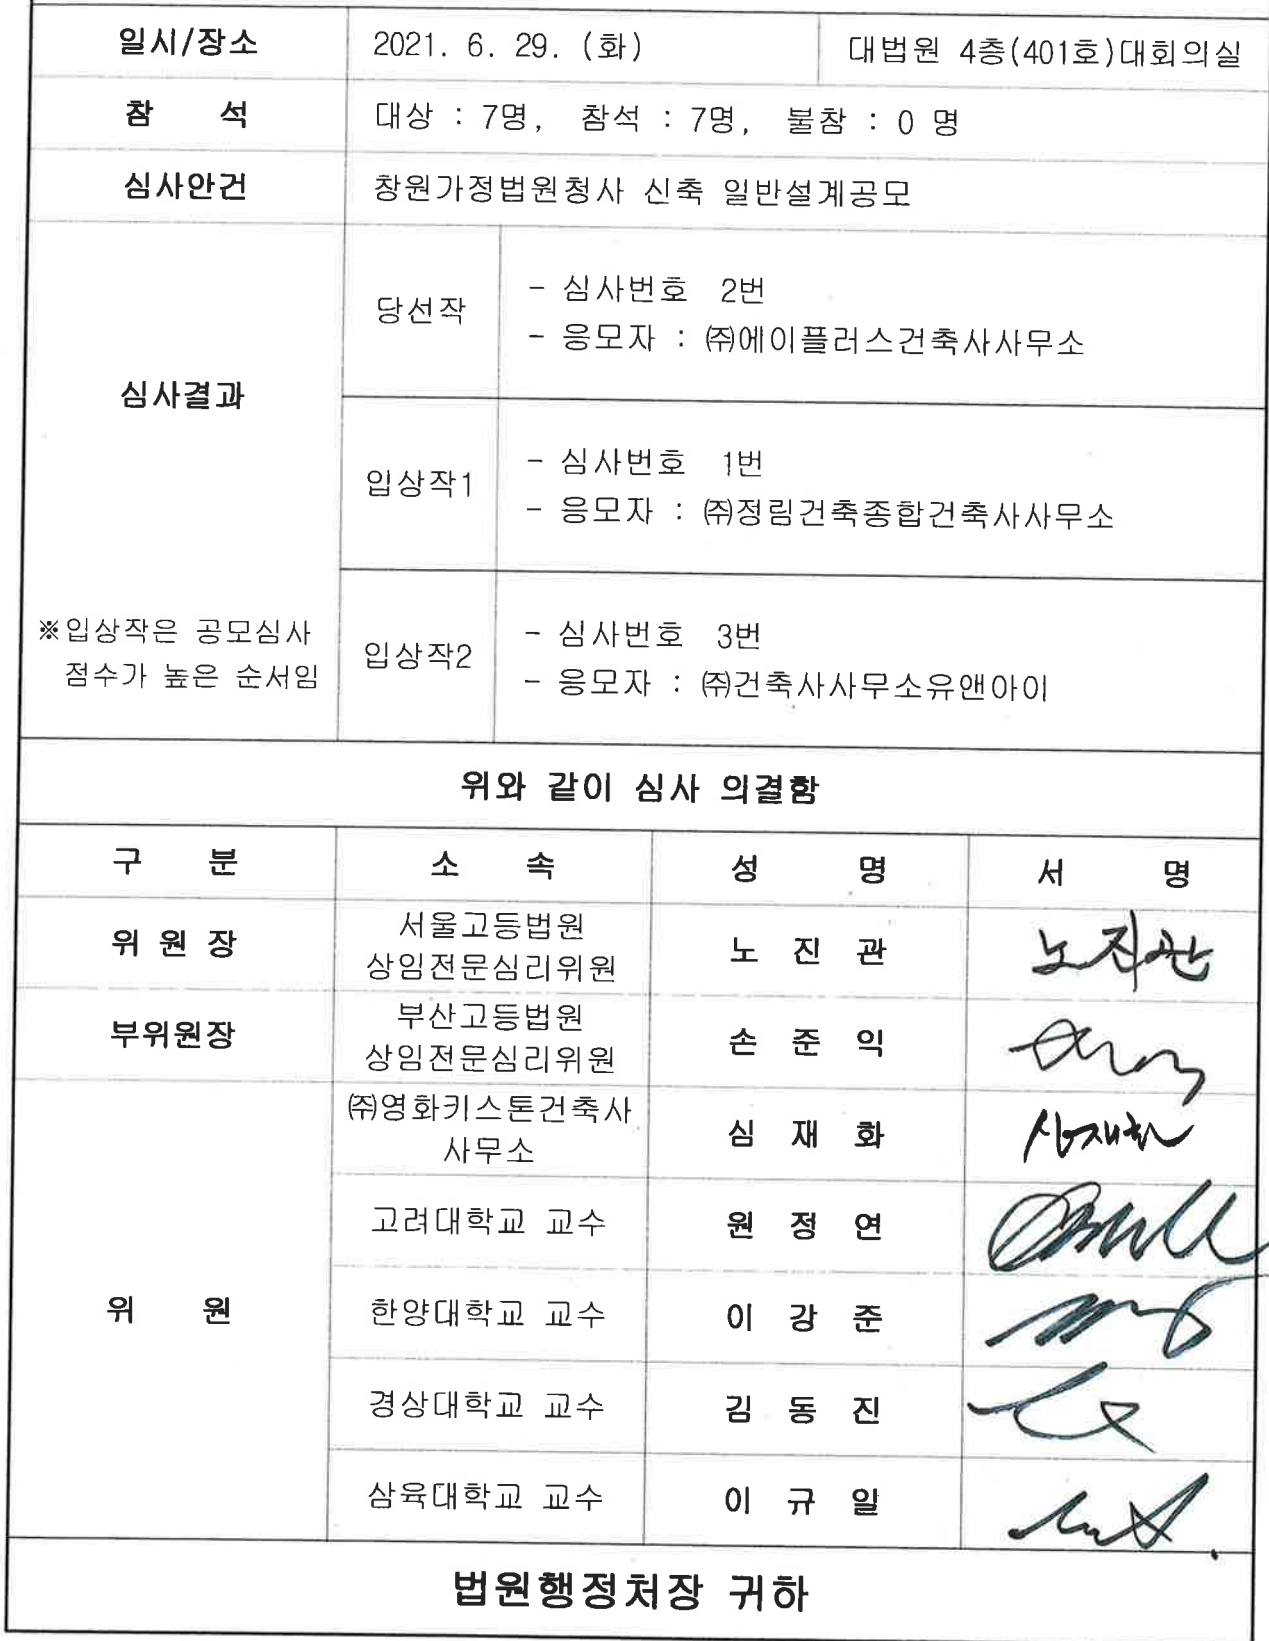 일시/장소 2021. 6. 29. (화) 대법원 4층(401호)대회의실
참 석 대상 : 7명, 참석 : 7명, 불참 : 0 명
심사안건 창원가정법원청사 신축 일반설계공모
심사결과
※입상작은 공모심사
점수가 높은 순서임
당선작
- 심사번호 2번
- 응모자 : ㈜에이플러스건축사사무소
입상작1
- 심사번호 1번
- 응모자 : ㈜정림건축종합건축사사무소
입상작2
- 심사번호 3번
- 응모자 : ㈜건축사사무소유앤아이
위와 같이 심사 의결함
구 분 소 속 성 명 서 명
위 원 장 서울고등법원
상임전문심리위원 노 진 관 노진관
부위원장 부산고등법원
상임전문심리위원 손 준 익
위 원
㈜영화키스톤건축사
사무소 심 재 화 심재화
고려대학교 교수 원 정 연
한양대학교 교수 이 강 준
경상대학교 교수 김 동 진
삼육대학교 교수 이 규 일
법원행정처장 귀하